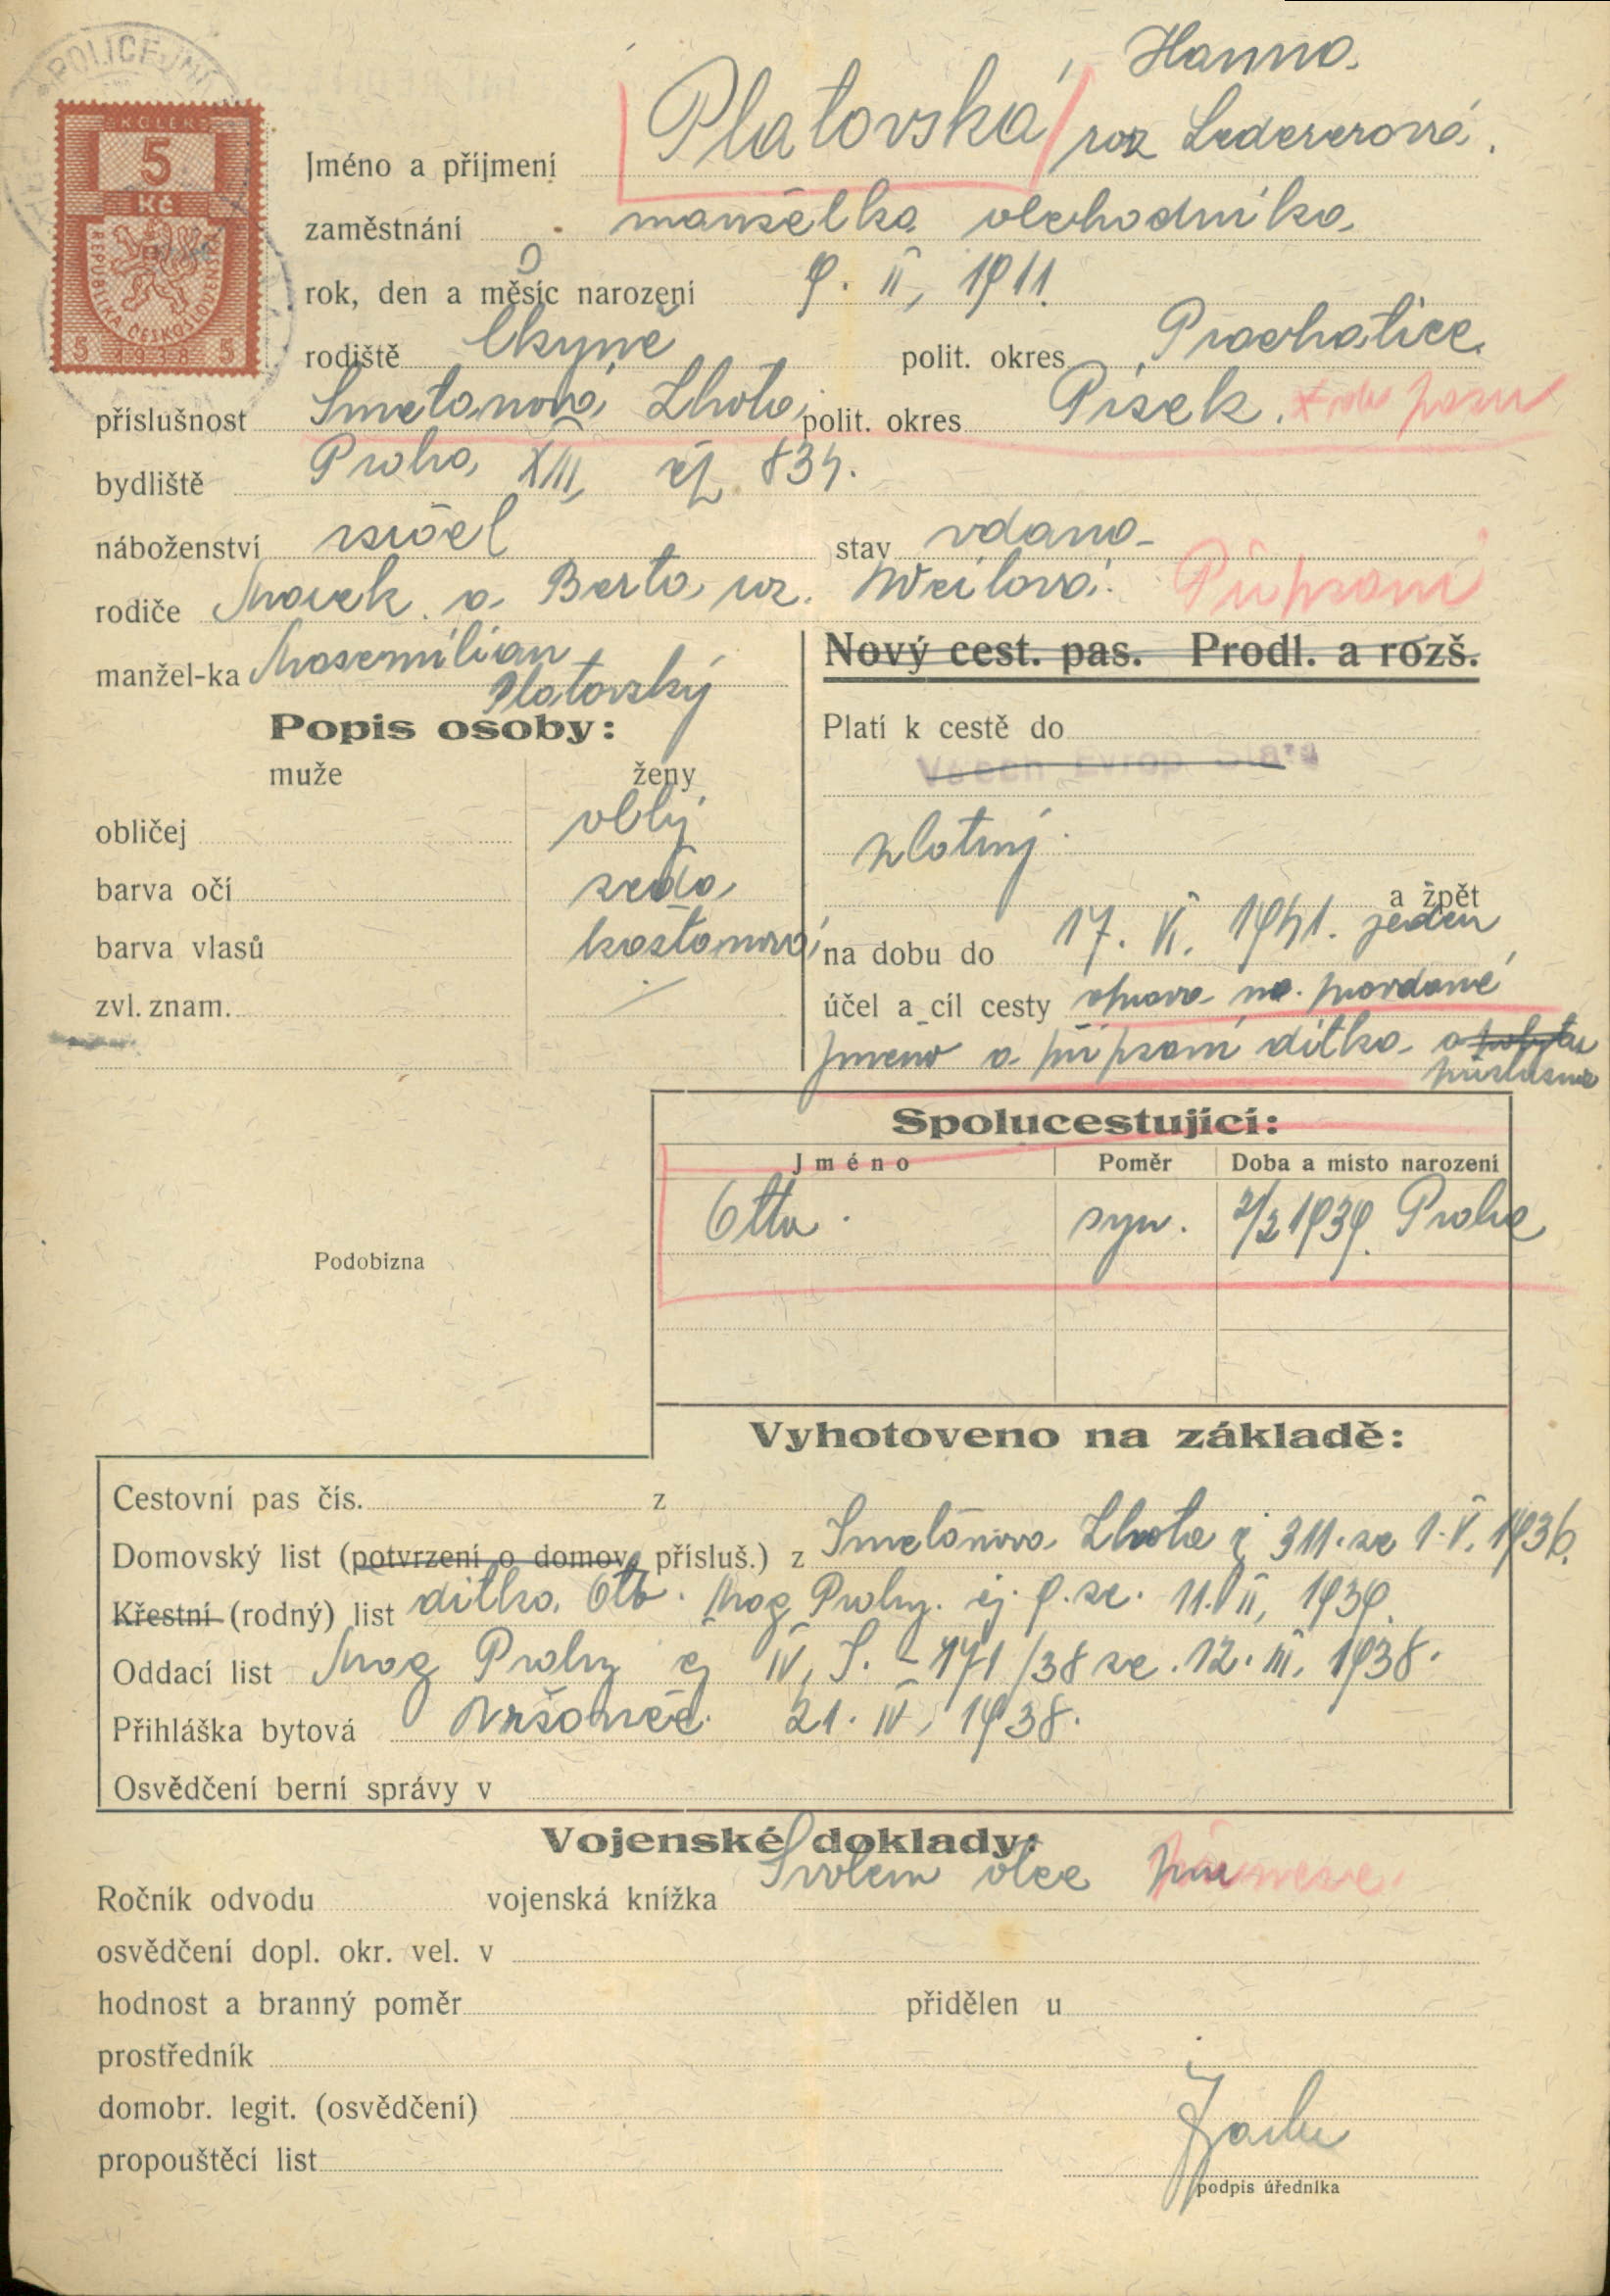 POLICEJNÍ
KOLEK
5
Kč
REPUBLIKA ČESKOSLOVENSKÁ
5 1938 5
Hanna
Jméno a příjmení Platovská roz Ledererová.
zaměstnání manželka obchodníka
rok, den a měsíc narození 9. II. 1911
rodiště Čkyně polit. okres Prachatice
příslušnost Smetanova Lhota polit. okres Písek. pasu
bydliště Praha XIII čp 834.
náboženství israel stav vdaná
rodiče Marek a Berta roz. Weilová. Připsání
manžel-ka Maxmilian
Platovský
Nový cest. pas. Prodl. a rozš.
Popis osoby:
Platí k cestě do
muže ženy
Všech Evrop Států
obličej oblý
platný
barva očí šedá
a zpět
barva vlasů kaštanová
na dobu do 17. VI. 1941. jeden
zvl. znam.
účel a cíl cesty oprava na provdané
jméno a připsání dítka a
příslušnost
Spolucestující:
Jméno Poměr Doba a místo narození
Otto. syn. 2/2 1939. Praha
Podobizna
Vyhotoveno na základě:
Cestovní pas čís. z
Domovský list (potvrzení o domov. přísluš.) z Smetanova Lhota čj 311. ze 1. V. 1936.
Křestní (rodný) list dítka Otto. Mag Prahy. čj. 9. ze. 11. II, 1939.
Oddací list Mag Prahy čj IV, S. - 171/38 ze. 12. III. 1938.
Přihláška bytová Vršovice. 21. IV, 1938.
Osvědčení berní správy v
Vojenské doklady:
Ročník odvodu vojenská knížka Svolení otce přinese
osvědčení dopl. okr. vel. v
hodnost a branný poměr přidělen u
prostředník
domobr. legit. (osvědčení)
propouštěcí list
podpis úředníka